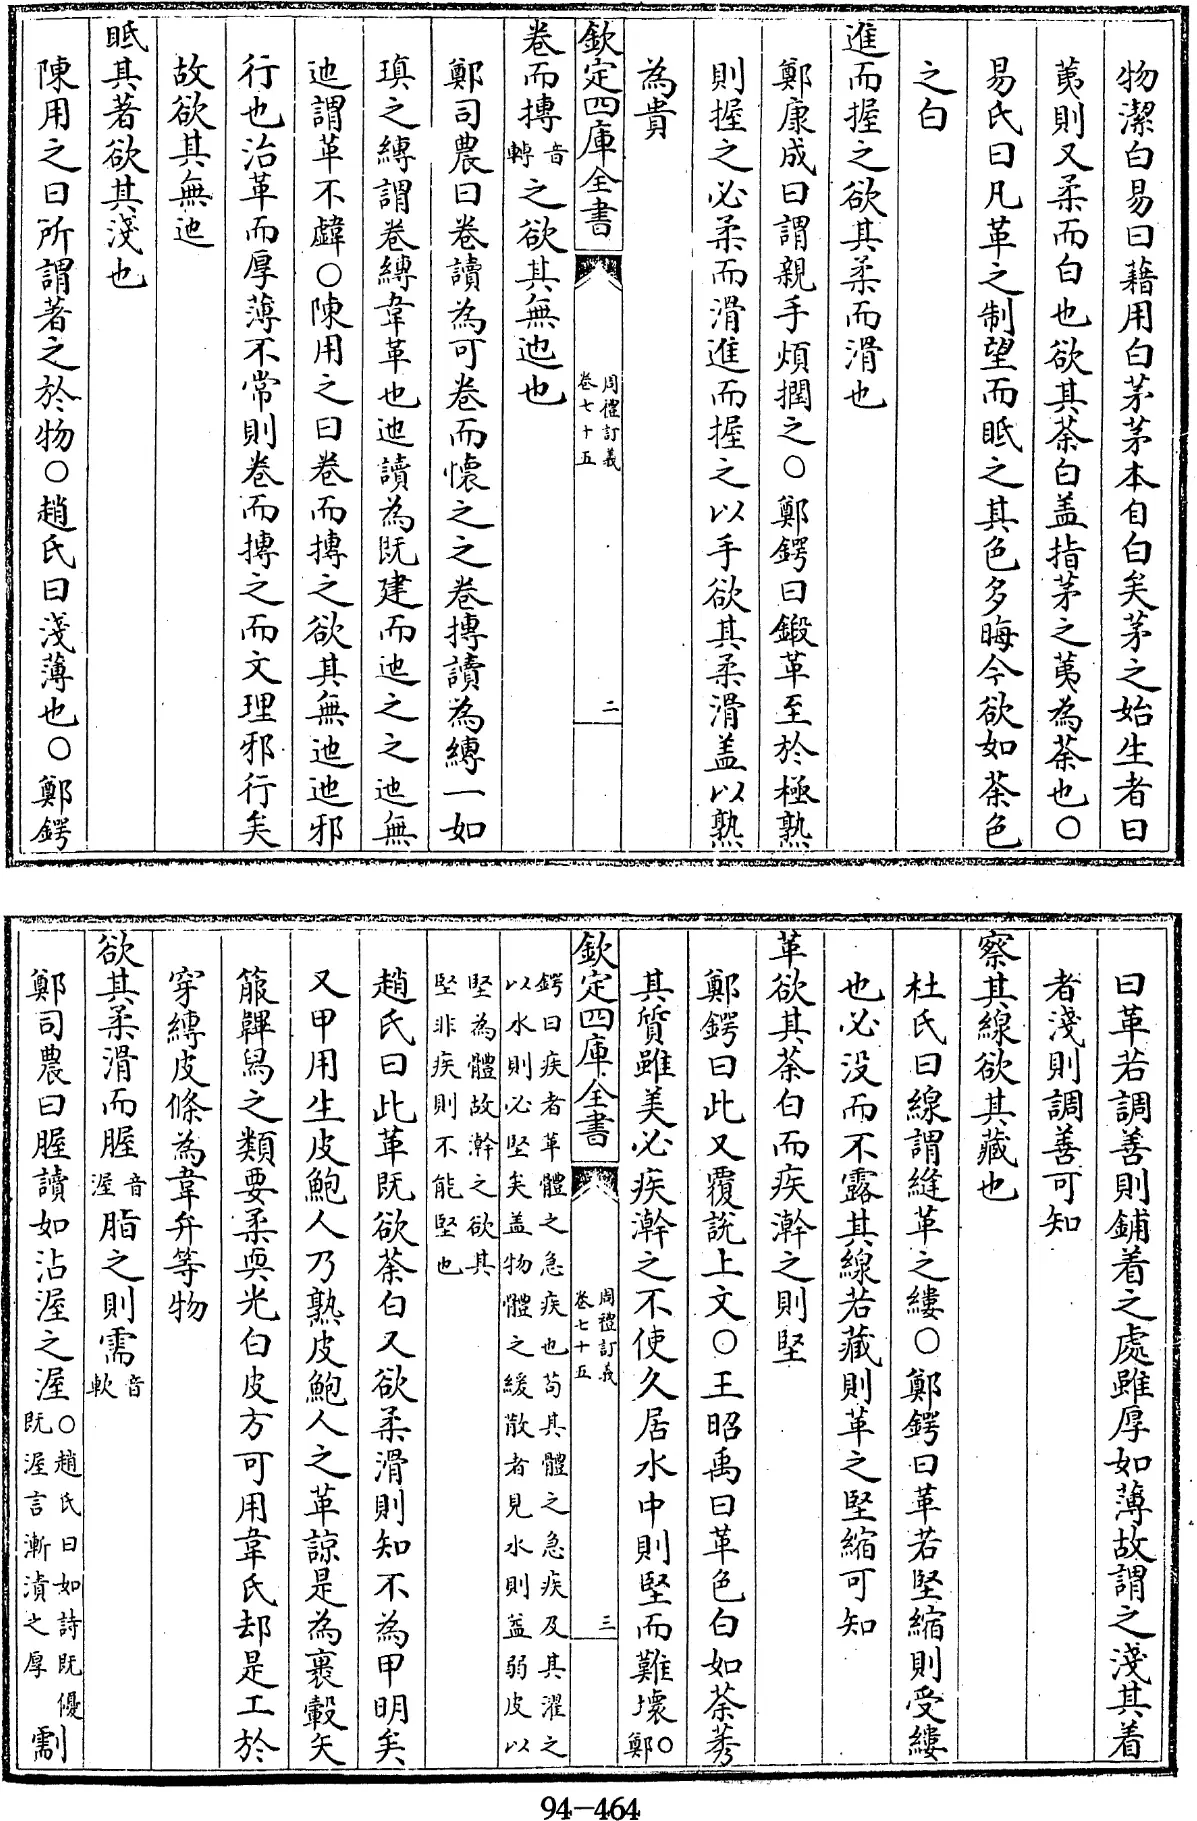 物潔白易曰藉用白茅茅本自白矣茅之始生者曰
荑則又柔而白也欲其荼白盖指茅之荑為荼也〇
易氏曰凡革之制望而眡之其色多晦今欲如荼色
之白
進而握之欲其柔而滑也
鄭康成曰謂親手煩撋之〇鄭鍔曰鍛革至於極熟
則握之必柔而滑進而握之以手欲其柔滑盖以熟
為貴
欽定四庫全書
周禮訂義
卷七十五
二
卷而摶音轉之欲其無迆也
鄭司農曰卷讀為可卷而懷之之卷摶讀為縳一如
瑱之縳謂卷縳韋革也迆讀為既建而迆之之迆無
迆謂革不䪜〇陳用之曰卷而摶之欲其無迆迆邪
行也治革而厚薄不常則卷而摶之而文理邪行矣
故欲其無迆
眡其著欲其淺也
陳用之曰所謂著之於物〇趙氏曰淺薄也〇鄭鍔
曰革若調善則鋪着之處雖厚如薄故謂之淺其着
者淺則調善可知
察其線欲其藏也
杜氏曰線謂縫革之縷〇鄭鍔曰革若堅縮則受縷
也必没而不露其線若藏則革之堅縮可知
革欲其荼白而疾澣之則堅
鄭鍔曰此又覆説上文〇王昭禹曰革色白如荼莠
其質雖美必疾澣之不使久居水中則堅而難壞〇鄭
欽定四庫全書
周禮訂義
卷七十五
三
鍔曰疾者革體之急疾也茍其體之急疾及其濯之
以水則必堅矣盖物體之緩散者見水則益弱皮以
堅為體故澣之欲其
堅非疾則不能堅也
趙氏曰此革既欲荼白又欲柔滑則知不為甲明矣
又甲用生皮鮑人乃熟皮鮑人之革諒是為裹轂矢
箙鞞舄之類要柔耎光白皮方可用韋氏却是工於
穿縳皮條為韋弁等物
欲其柔滑而腥音渥脂之則需音軟
鄭司農曰腥讀如沾渥之渥〇趙氏曰如詩既優既渥言漸漬之厚劀
94-464